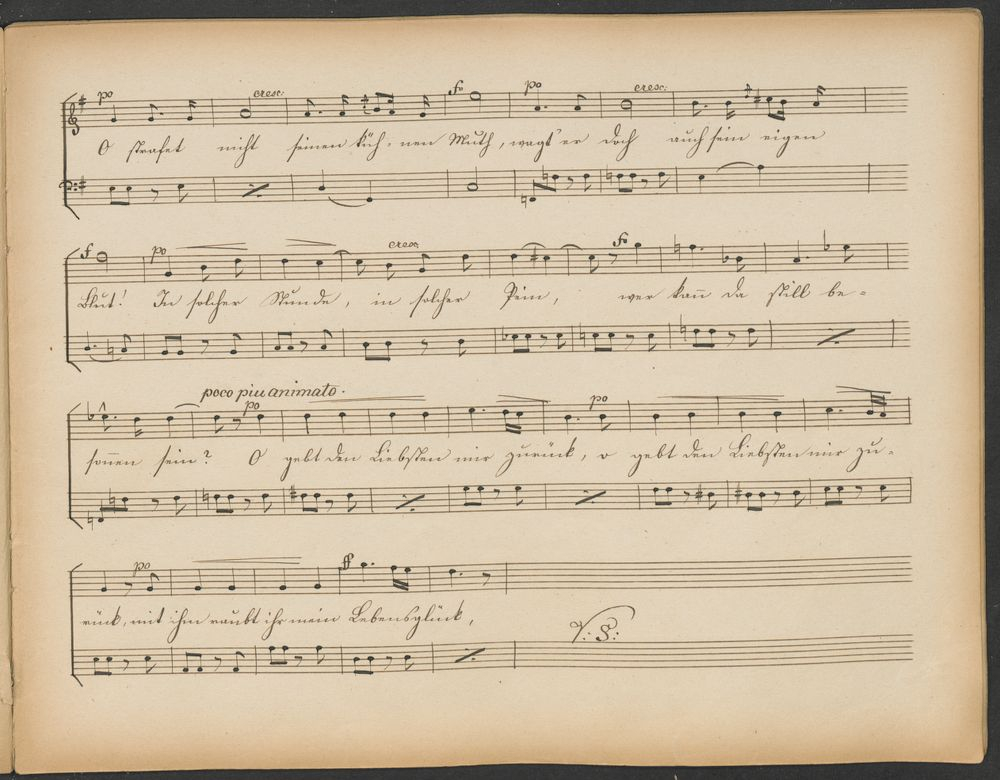 po cresc: fo po cresc:
O strafet nicht seinen küh- nen Muth, wagt' er doch auch sein eigen
f po cresc fo
Blut! In solcher Stunde, in solcher Pein, wer kann da still be-
poco piu animato.
po po
sonnen sein? O gebt den Liebsten mir zurück, o gebt den Liebsten mir zu-
po ff
rück, mit ihm raubt ihr mein Lebensglück,
V: S.: